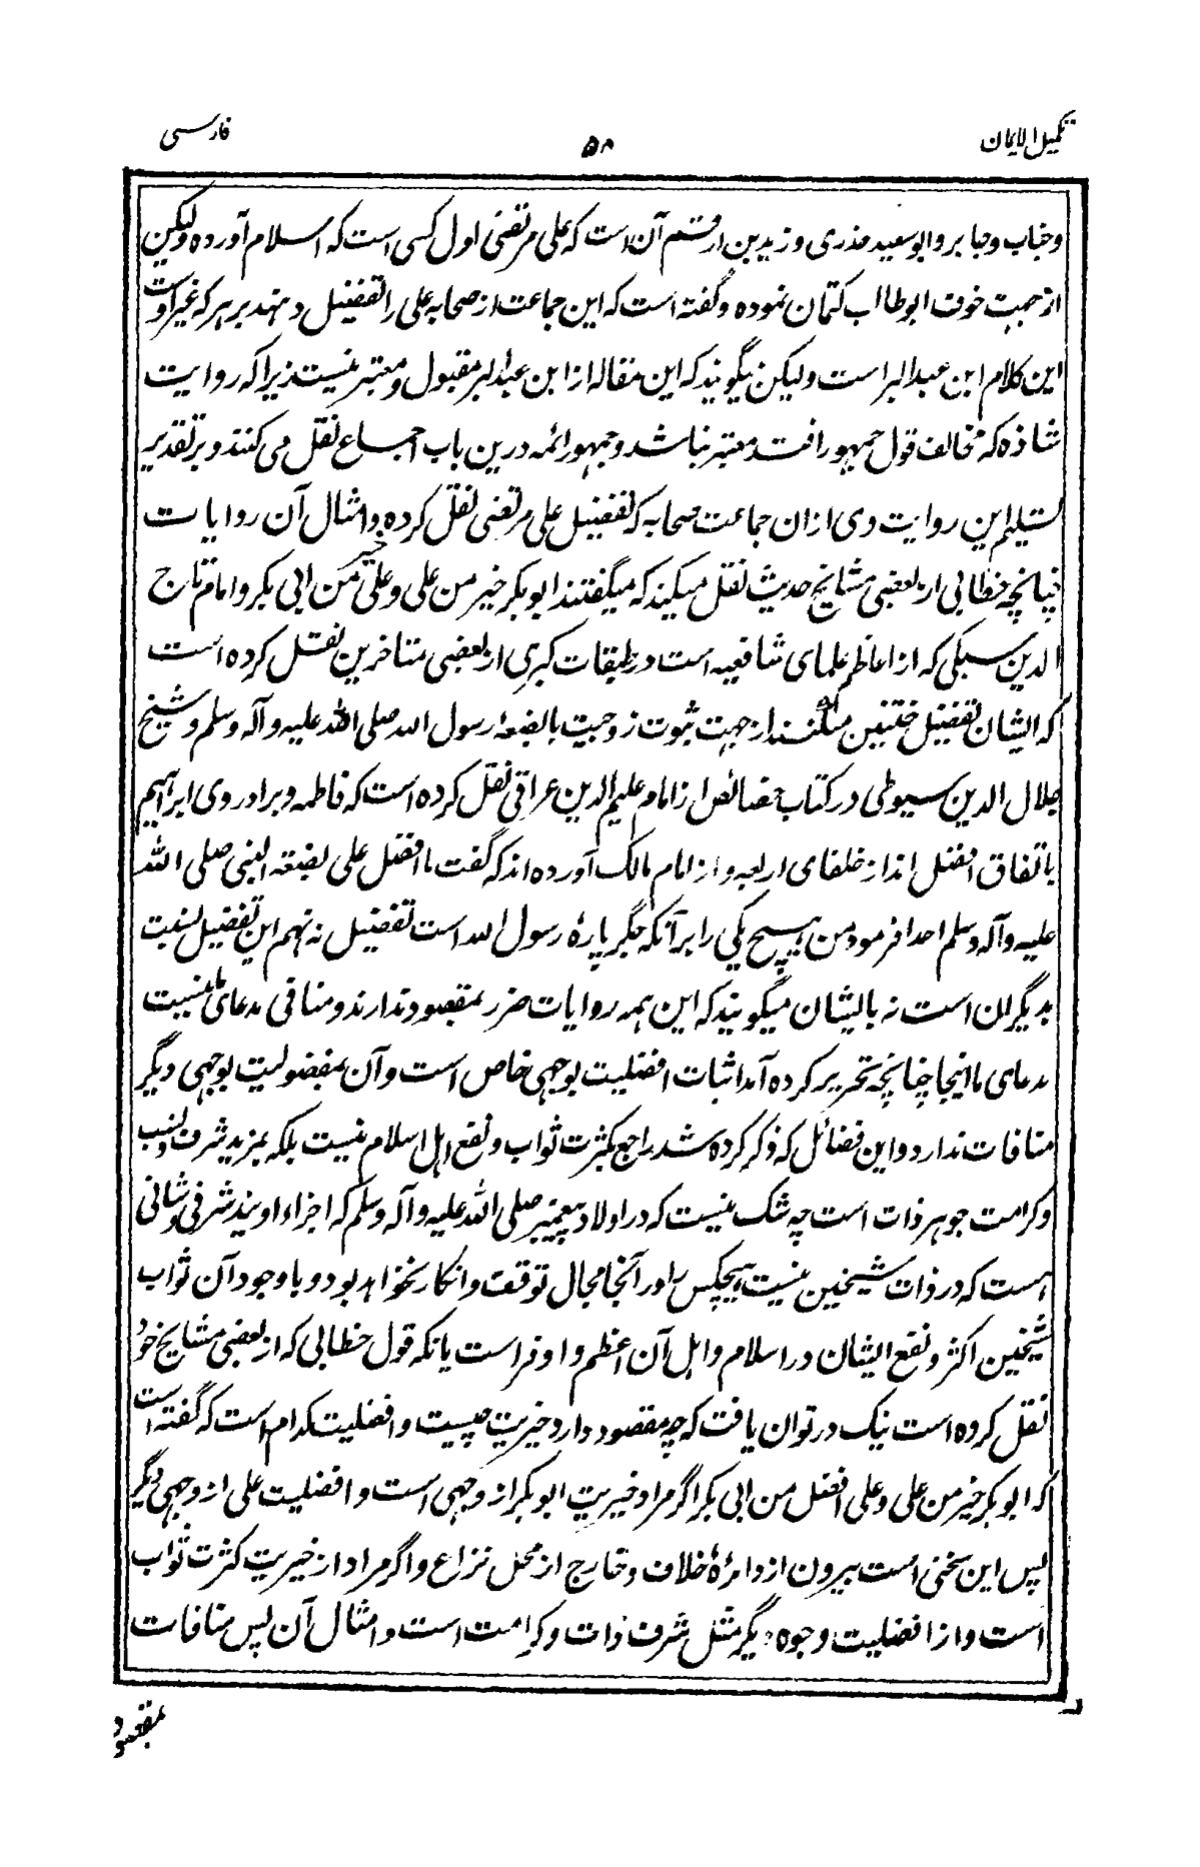 تکمیل الایمان
۵۸
فارسی
وخباب وجابر وابو سعید خدری وزید بن ارقم آن است که علی مرتضی اول کسی است که اسلام آورده ولیکن
از جهت خوف ابوطالب کتمان نموده وگفته است که این جماعت از صحابه علی را تفضیل دهند بر هر که غیر اوست
این کلام ابن عبدالبر است ولیکن میگویند که این مقاله از ابن عبدالبر مقبول ومعتبر نیست زیرا که روایت
شاذه که مخالف قول جمهور افتد معتبر نباشد وجمهور ائمه درین باب اجماع نقل می کنند وبر تقدیر
تسلیم این روایت وی ازان جماعت صحابه که تفضیل علی مرتضی نقل کرده وامثال آن روایات
چنانچه خطابی از بعضی مشایخ حدیث نقل میکند که میگفتند ابوبکر خیر من علی وعلی خیر من ابی بکر وامام تاج
الدین سبکی که از اعاظم علمای شافعیه است در طبقات کبری از بعضی متاخرین نقل کرده است
که ایشان تفضیل ختنین میکنند از جهت ثبوت زوجیت با بضعه رسول الله صلی الله علیه وآله وسلم وشیخ
جلال الدین سیوطی در کتاب خصائص از امام علیم الدین عراقی نقل کرده است که فاطمه وبرادر وی ابراهیم
باتفاق افضل اند از خلفای اربعه واز امام مالک آورده اند که گفت ما افضل علی بضعة النبی صلی الله
علیه وآله وسلم احدا فرمود من هیچ یکی را بر آنکه جگر پارهٔ رسول الله است تفضیل نه نهم این تفضیل نسبت
بدیگران است نه بایشان میگویند که این همه روایات ضرر بمقصود ندارند ومنافی مدعای ما نیست
مدعای ما اینجا چنانچه تحریر کرده آمد اثبات افضلیت بوجهی خاص است وآن بمفضولیت بوجهی دیگر
منافات ندارد واین فضائل که ذکر کرده شد راجع بکثرت ثواب ونفع اهل اسلام نیست بلکه بمزید شرف ونسب
وکرامت جوهر ذات است چه شک نیست که در اولاد پیغمبر صلی الله علیه وآله وسلم که اجزاء اویند شرفی وشانی
هست که در ذات شیخین نیست هیچکس را در آنجا مجال توقف وانکار نخواهد بود وبا وجود آن ثواب
شیخین اکثر ونفع ایشان در اسلام واهل آن اعظم واوفر است یا نکه قول خطابی که از بعضی مشایخ خود
نقل کرده است نیک در توان یافت که چه مقصود دارد خیریت چیست وافضلیت کدام است که گفته است
که ابوبکر خیر من علی وعلی افضل من ابی بکر اگر مراد خیریت ابوبکر از وجهی است وافضلیت علی از وجهی دیگر
پس این سخنی است بیرون از دائرهٔ خلاف وخارج از محل نزاع واگر مراد از خیریت کثرت ثواب
است واز افضلیت وجوه دیگر مثل شرف ذات وکرامت است وامثال آن پس منافات
بمقصود